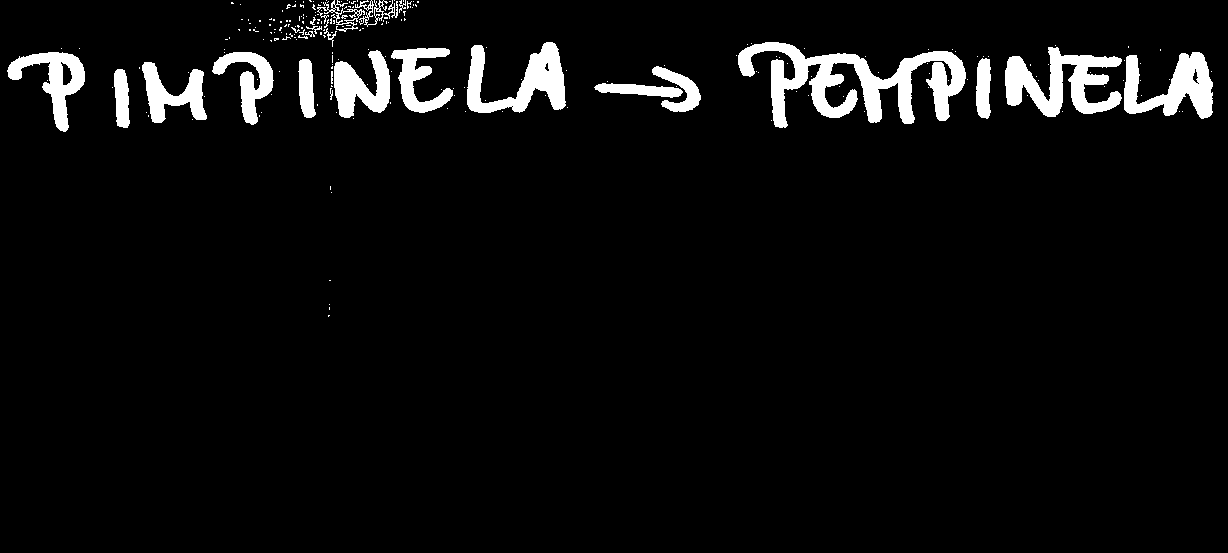 PIMPINELA → PEMPINELA